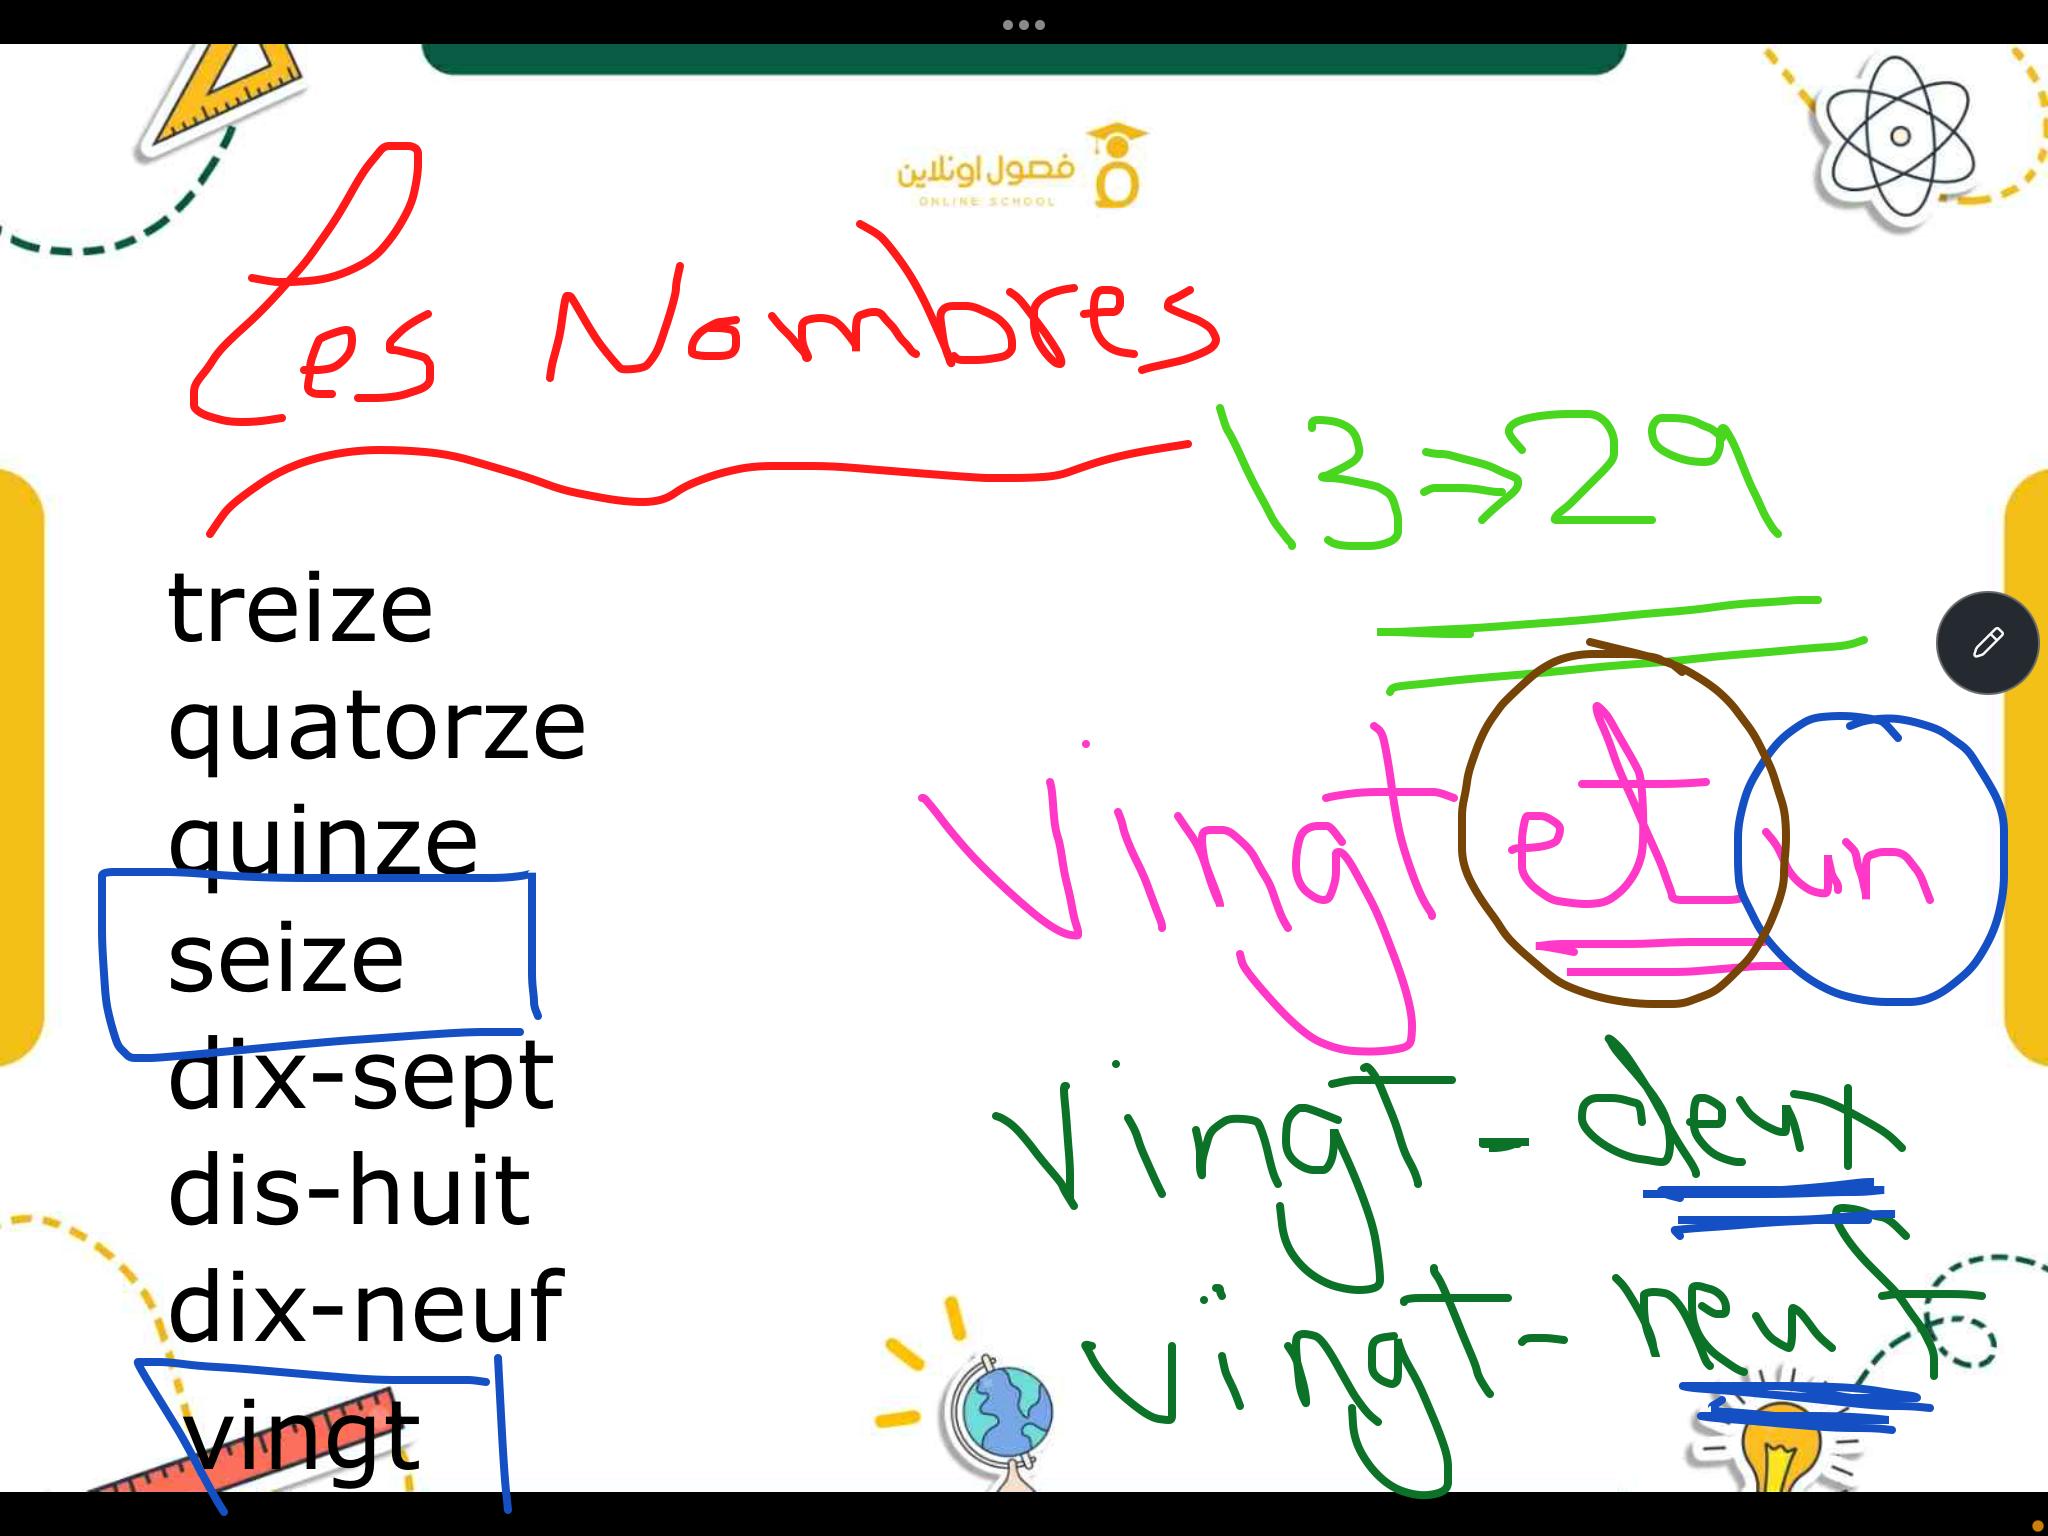 فصول اونلاين
ONLINE SCHOOL
Les Nombres
13 ⇒ 29
treize
quatorze
quinze
seize
dix-sept
dis-huit
dix-neuf
vingt
vingt et un
vingt - deux
vingt - neuf